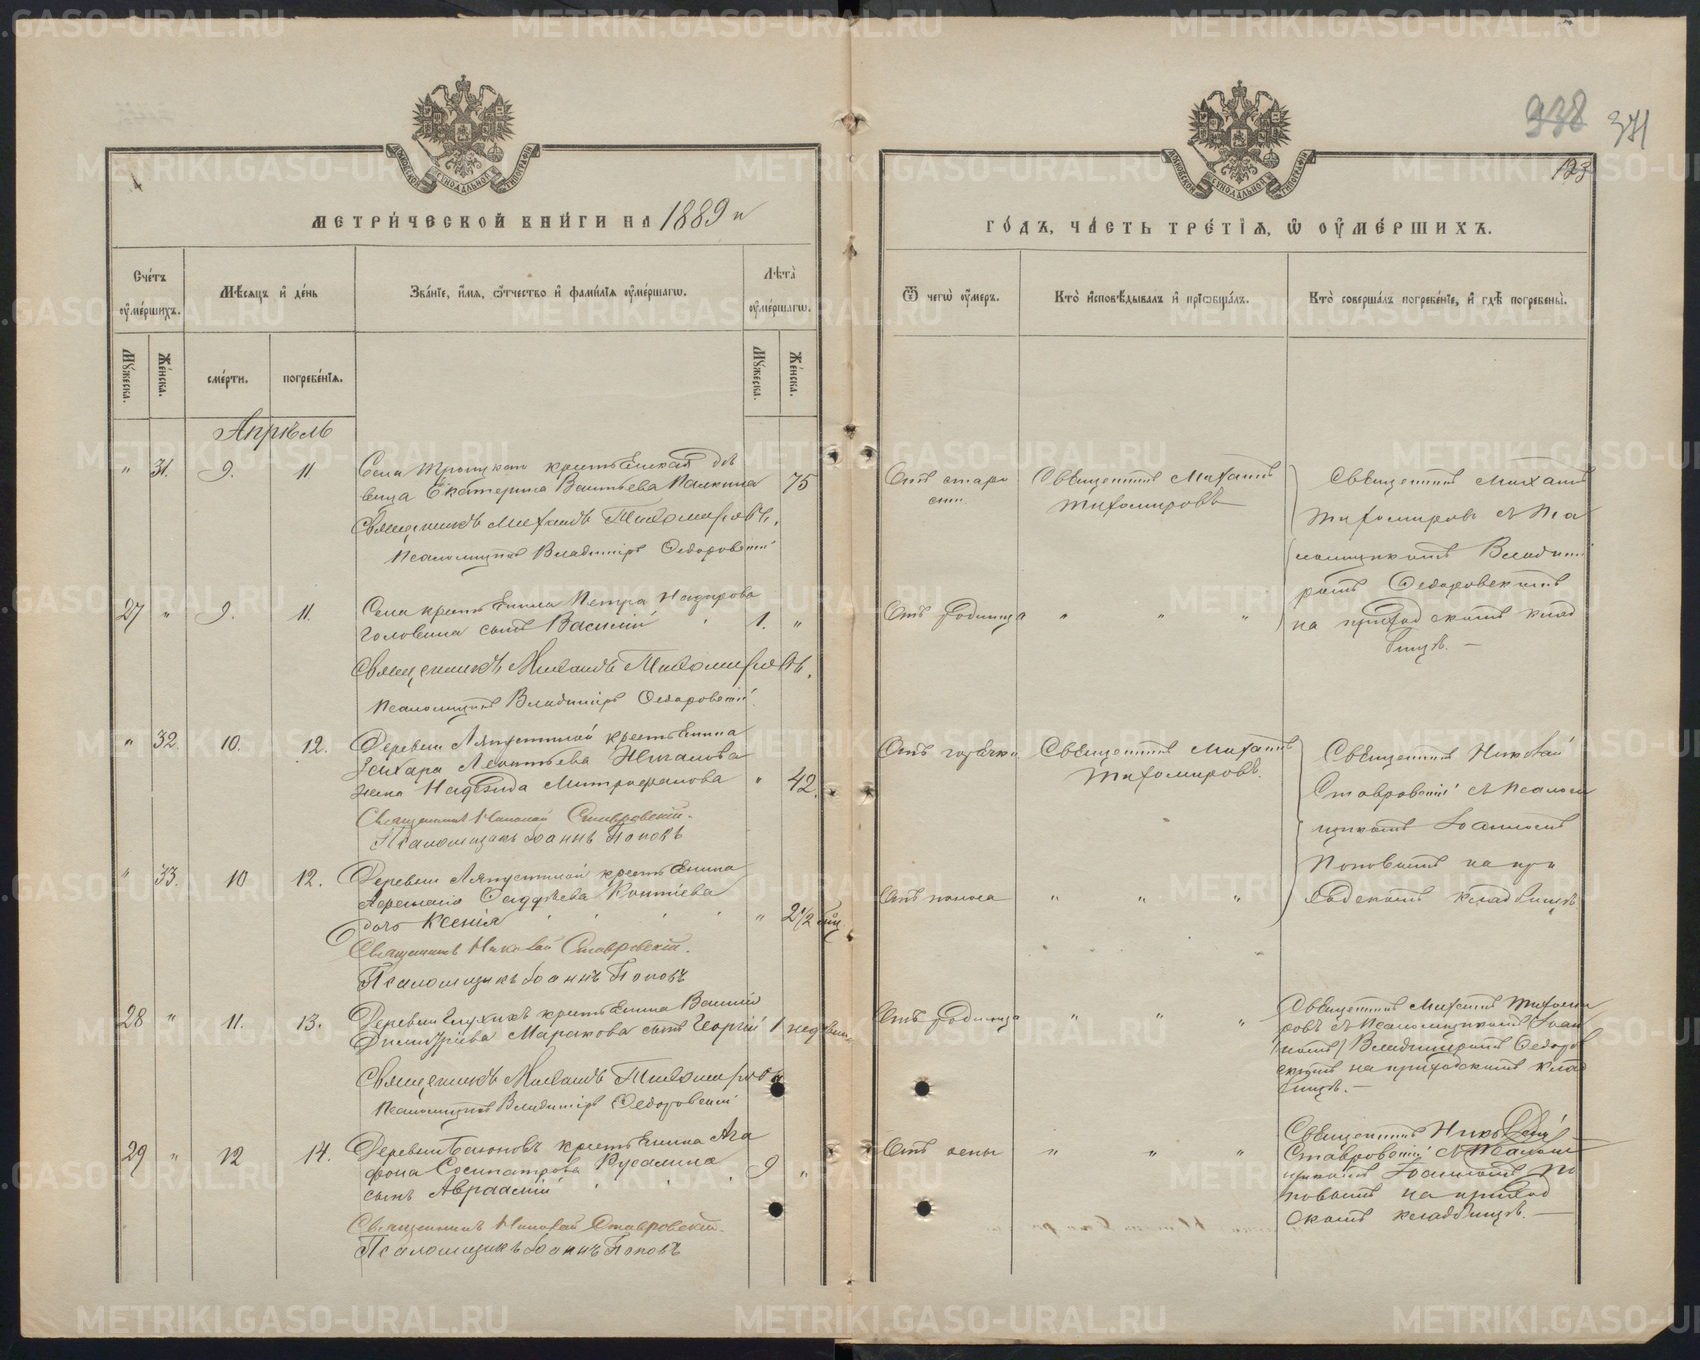 938 371
123
МЕТРИ́ЧЕСКОЙ КНИ́ГИ НА 1889 й
ГО́ДЪ, ЧА́СТЬ ТРЕ́ТІѦ, Ѿ ОУ҆МЕ́РШИХЪ.
Сче́тъ оу҆ме́ршихъ.
Мѣ́сяцъ и҆ де́нь
Зва́нїе, и҆́мя, ѻ҆́тчество и҆ фами́лїя оу҆ме́ршагѡ.
Лѣта̀ оу҆ме́ршагѡ.
Ѿ чегѡ̀ оу҆́меръ.
Кто̀ и҆сповѣ́дывалъ и҆ прїѡбща́лъ.
Кто̀ соверша́лъ погребе́нїе, и҆ гдѣ̀ погребены̀.
Му́жеска. Же́нска. сме́рти. погребе́нїя. Му́жеска. Же́нска.
Апрѣль
" 31. 9. 11 Села Троицкаго крестьянская дѣ
вица Екатерина Васильева Палкина 75
Священникъ Михаилъ Тихомировъ.
Псаломщикъ Владиміръ Ѳедоровскій
Отъ старо
сти.
Священникъ Михаилъ
Тихомировъ
Священникъ Михаилъ
Тихомировъ съ Пса
ломщикомъ Владимі
ромъ Ѳедоровскимъ
на приходскомъ клад
бищѣ. —
27 " 9. 11. Села крестьянина Петра Назарова
Головина сынъ Василій 1. "
Священникъ Михаилъ Тихомировъ.
Псаломщикъ Владиміръ Ѳедоровскій
Отъ родимца " " "
" 32. 10. 12. Деревни Ляпустиной крестьянина
Леонтьева Жигалова
жена Надежда Митрофанова " 42.
Священникъ Николай Ставровскій.
Псаломщикъ Іоаннъ Поповъ
Отъ горячки
Священникъ Михаилъ
Тихомировъ.
Священникъ Николай
Ставровскій съ Псалом
щикомъ Іоанномъ
Поповымъ на при
ходскомъ кладбищѣ
" 33. 10 12. Деревни Ляпустиной крестьянина
дочь Ксенія " 2½
Священникъ Николай Ставровскій.
Псаломщикъ Іоаннъ Поповъ
Отъ поноса " " "
28 " 11. 13. Деревни Глухихъ крестьянина Василія
Димитріева Маракова сынъ Георгій 1
Священникъ Михаилъ Тихомировъ
Псаломщикъ Владиміръ Ѳедоровскій
Отъ родимца " " "
Священникъ Михаилъ Тихоми
ровъ съ Псаломщикомъ
Владиміромъ Ѳедоров
скимъ на приходскомъ клад
бищѣ. —
29 " 12 14. Деревни крестьянина Ага
фона Сосипатрова Русалина
сынъ Авраамій 9 "
Священникъ Николай Ставровскій.
Псаломщикъ Іоаннъ Поповъ
Отъ оспы " " "
Священникъ Николай
Ставровскій съ Псалом
щикомъ Іоанномъ По
повымъ на приход
скомъ кладбищѣ. —
METRIKI.GASO-URAL.RU